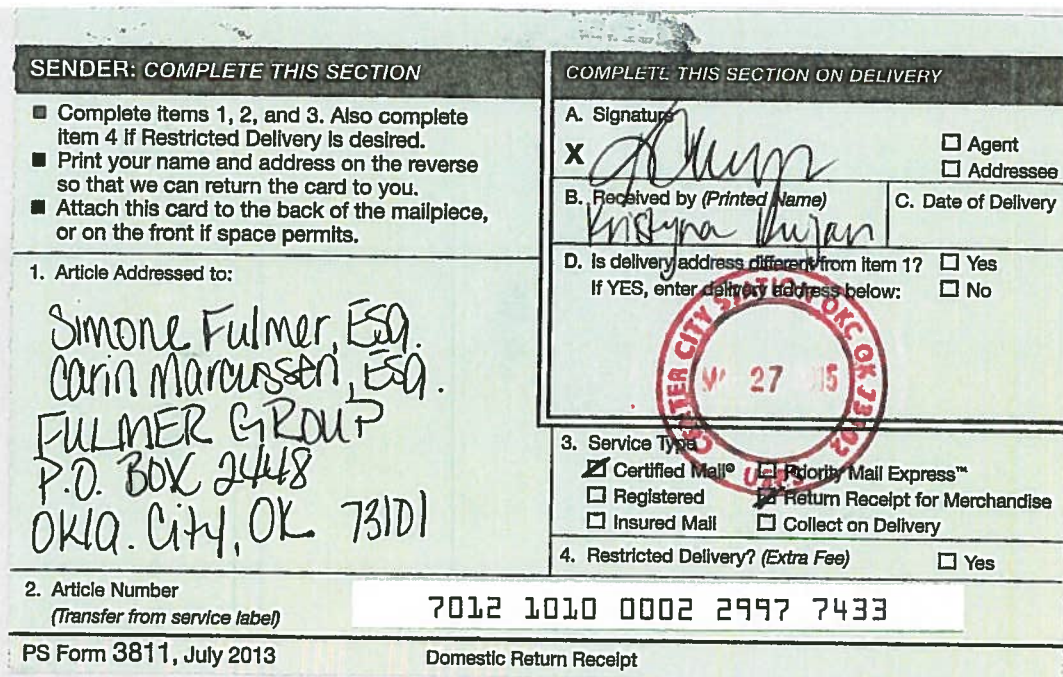 SENDER: COMPLETE THIS SECTION
■ Complete items 1, 2, and 3. Also complete
item 4 if Restricted Delivery is desired.
■ Print your name and address on the reverse
so that we can return the card to you.
■ Attach this card to the back of the mailpiece,
or on the front if space permits.
1. Article Addressed to:
Simone Fulmer, Esq.
Carin Marcussen, Esq.
FULMER GROUP
P.O. BOX 2448
OKla. City, OK 73101
2. Article Number
(Transfer from service label)
7012 1010 0002 2997 7433
PS Form 3811, July 2013
Domestic Return Receipt
COMPLETE THIS SECTION ON DELIVERY
A. Signature
X
☐ Agent
☐ Addressee
B. Received by (Printed Name)
C. Date of Delivery
Kristyna
D. Is delivery address different from item 1? ☐ Yes
If YES, enter delivery address below: ☐ No
CENTER CITY STATION OKC OK 73102
27 15
USPS
3. Service Type
☑ Certified Mail® ☐ Priority Mail Express™
☐ Registered ☑ Return Receipt for Merchandise
☐ Insured Mail ☐ Collect on Delivery
4. Restricted Delivery? (Extra Fee) ☐ Yes